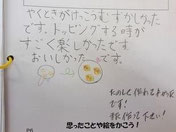 やくときがけっこうむずかしかった
です。トッピングする時が
すごく楽しかったです
おいしかったです。
たのしく作れてよかった
です！
また作って下さい！
思ったことや絵をかこう！